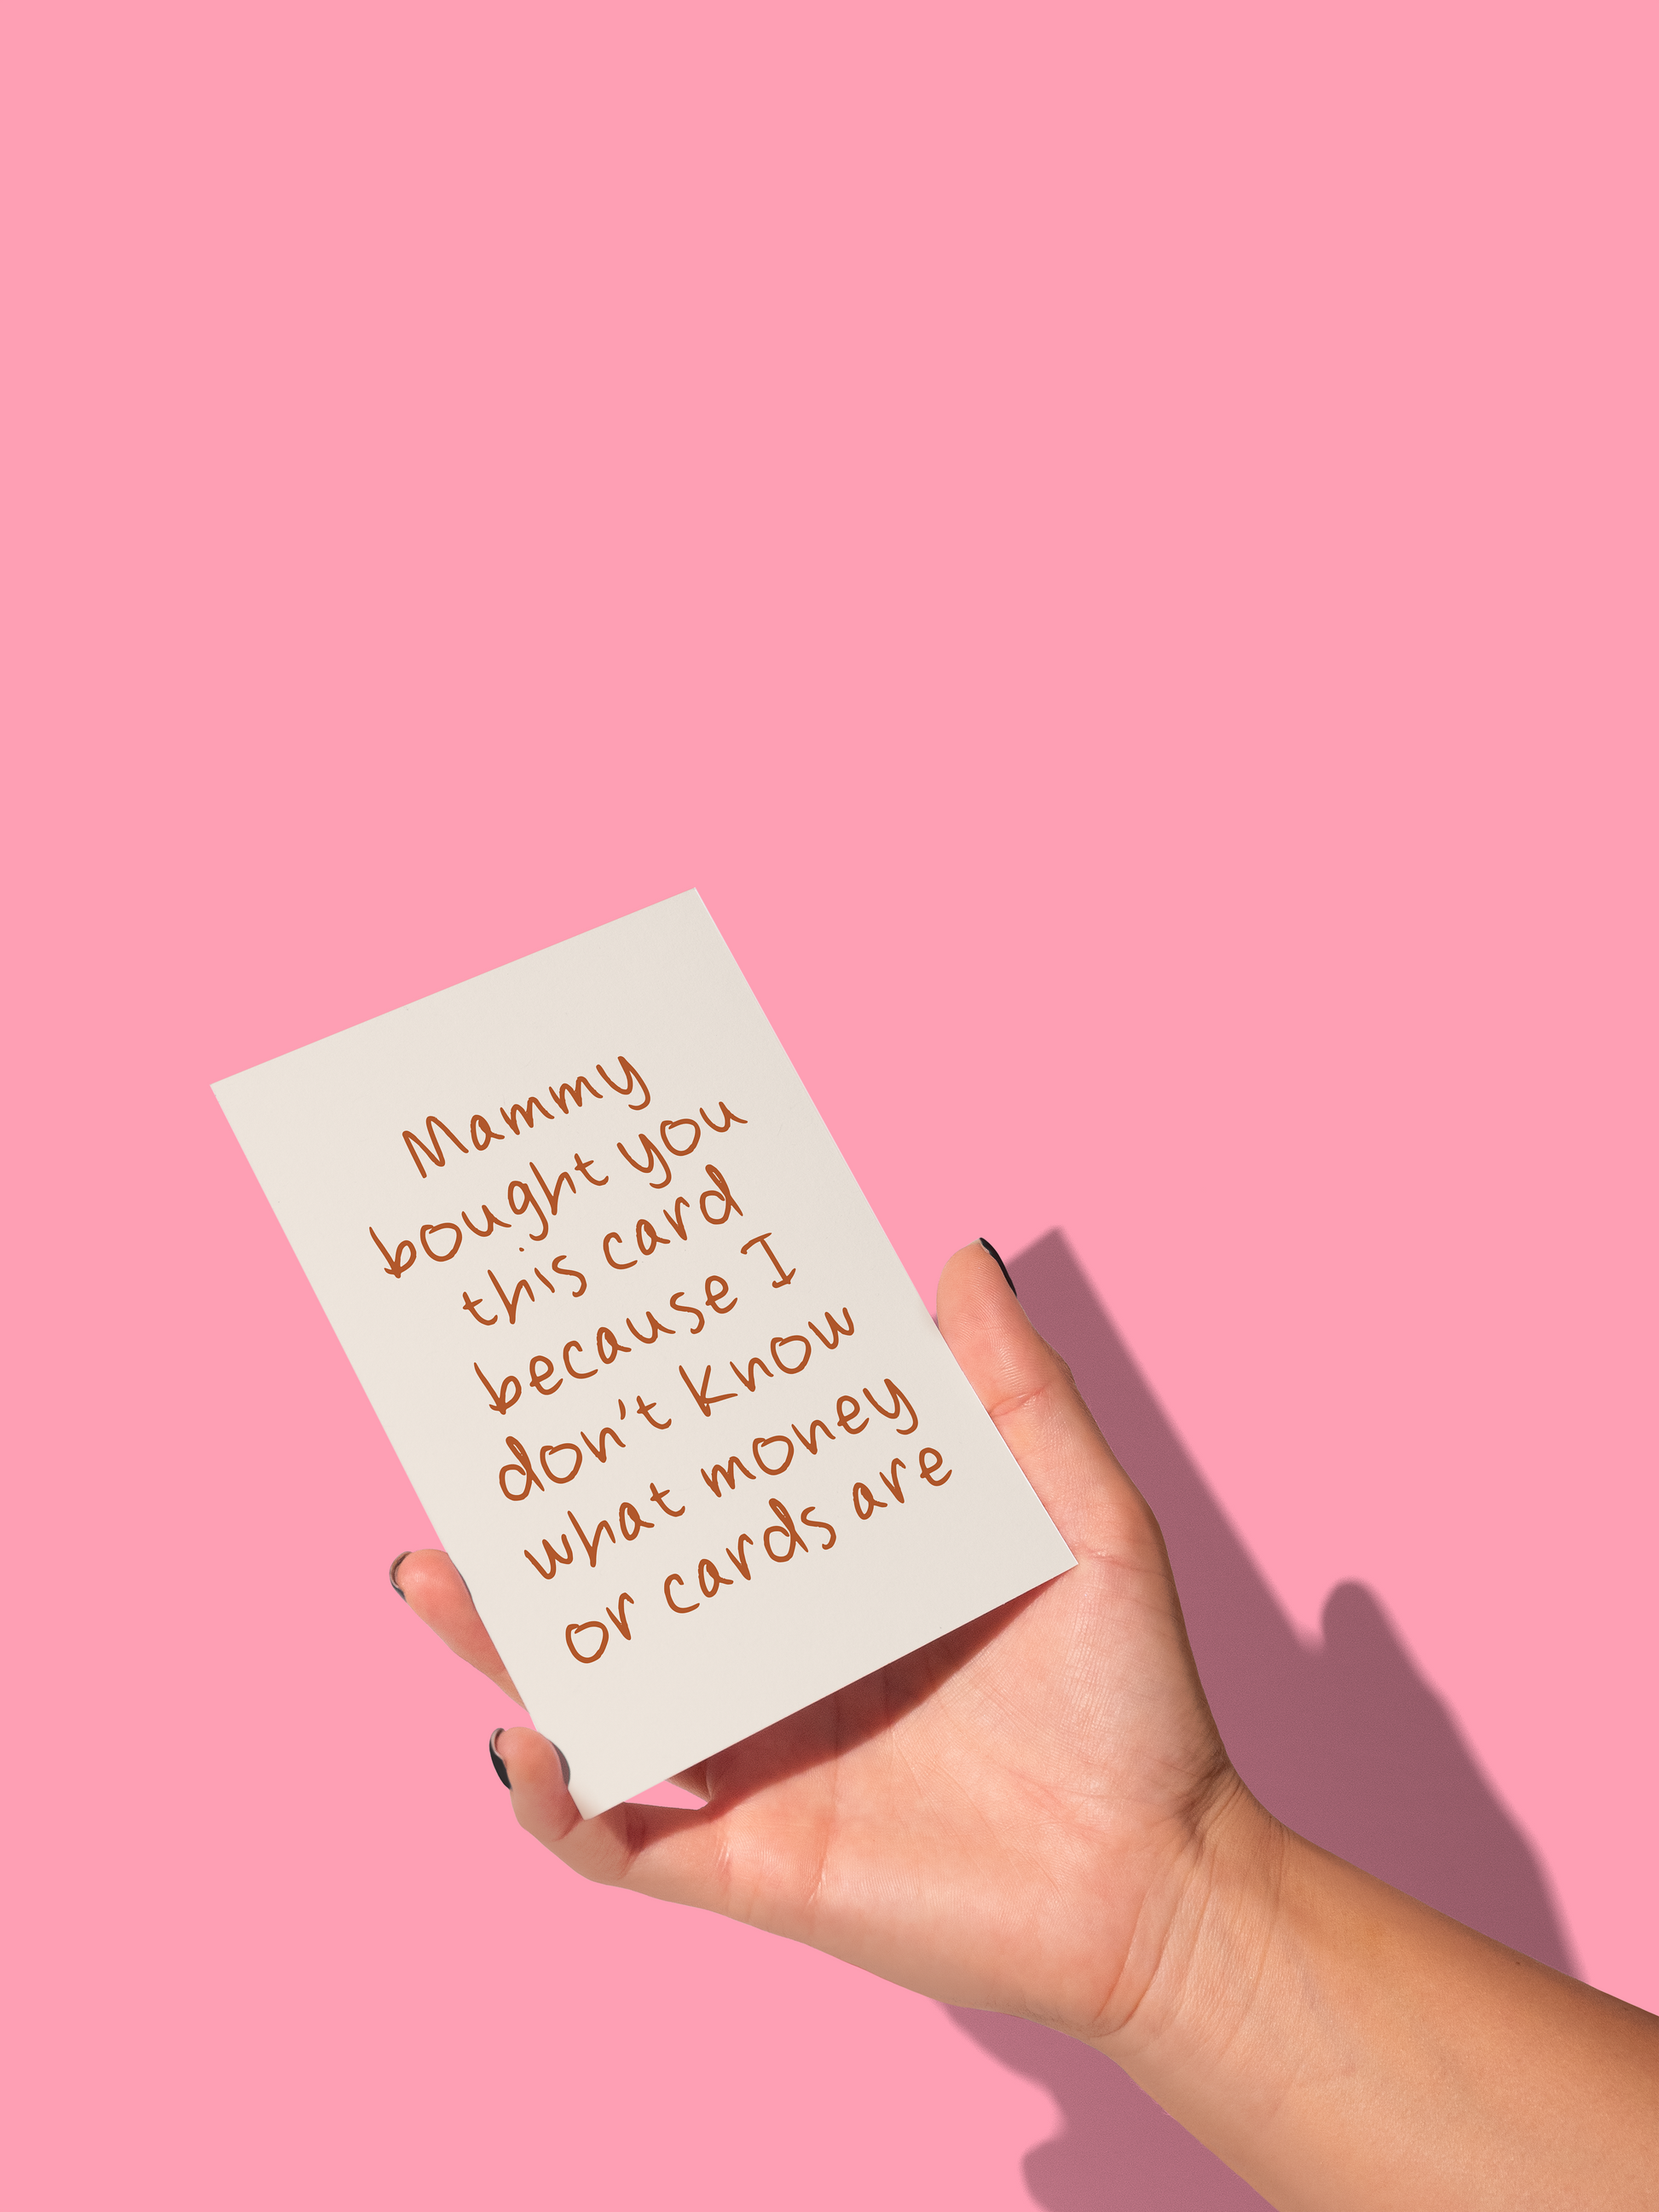 Mammy
bought you
this card
because I
don't know
what money
or cards are